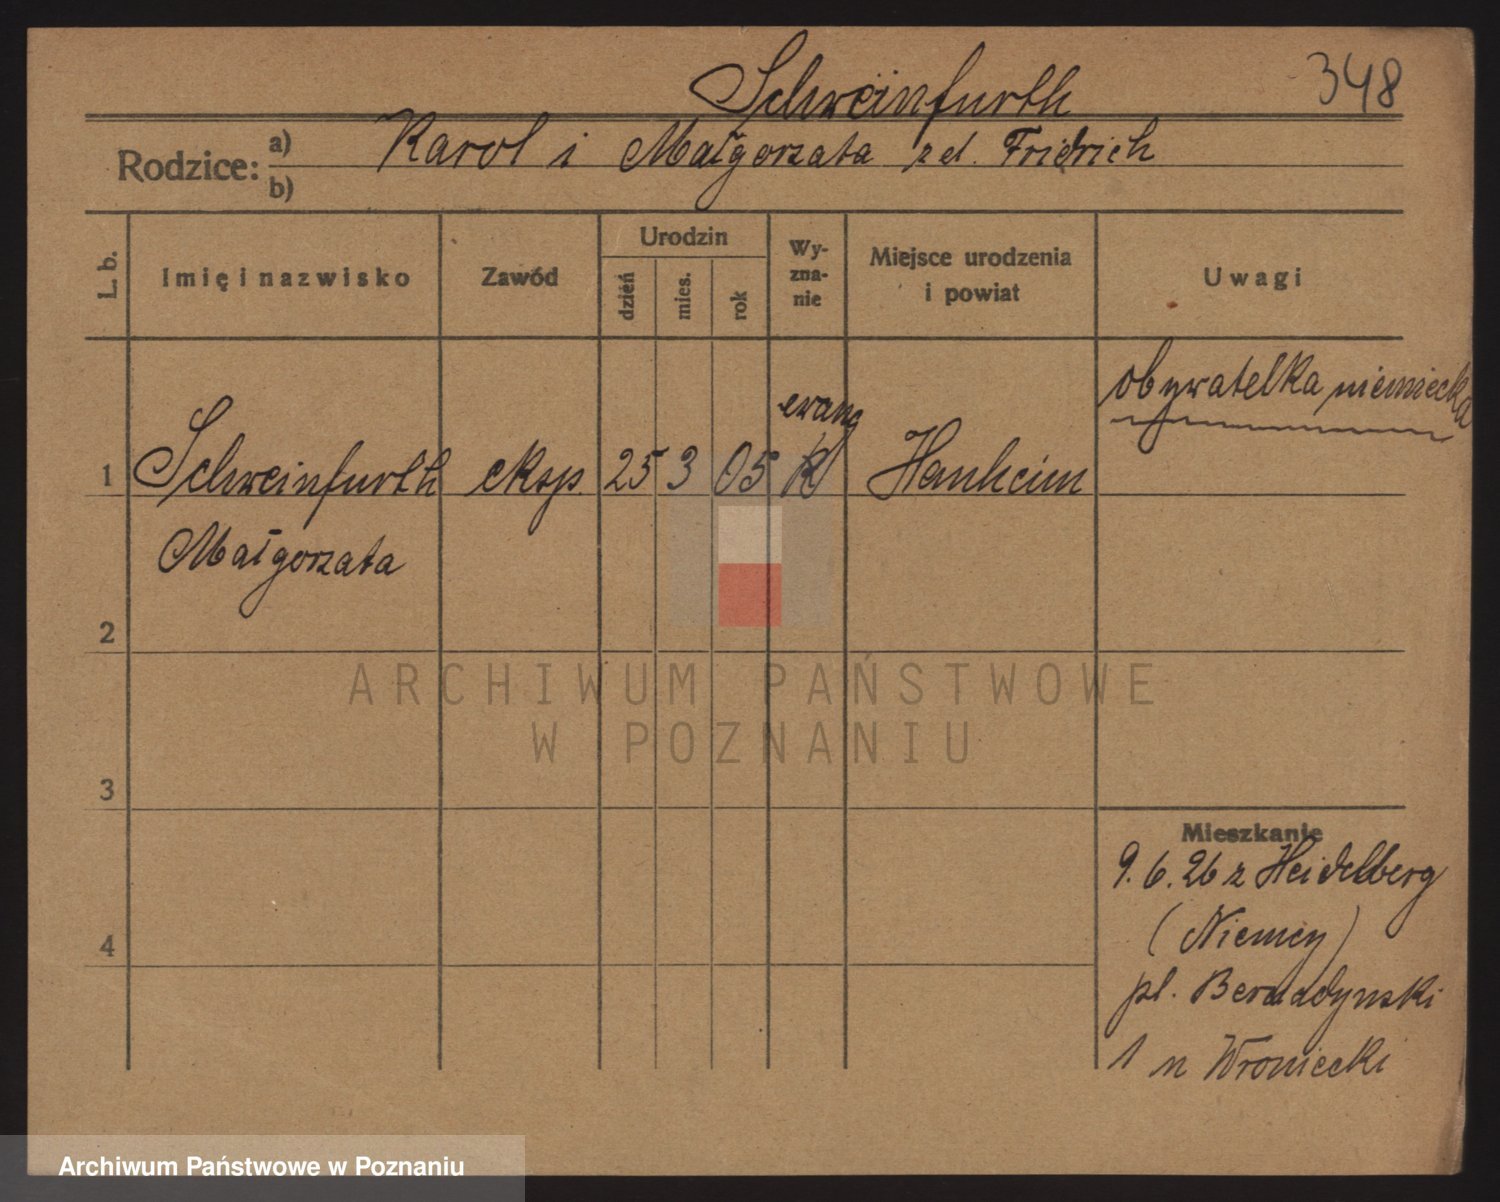 Schweinfurth
348
Rodzice: a) Karol i Małgorzata z d. Fridrich
b)
L. b.
Imię i nazwisko
Zawód
Urodzin
dzień
mies.
rok
Wy-
zna-
nie
Miejsce urodzenia
i powiat
Uwagi
obywatelka niemiecka
ewang
1 Schweinfurth eksp. 25 3 05 k Hanheim
Małgorzata
2
ARCHIWUM PAŃSTWOWE
W POZNANIU
3
Mieszkanie
9.6.26 z Heidelberg
(Niemcy)
4
pl. Bernadynski
1 n Wroniecki
Archiwum Państwowe w Poznaniu